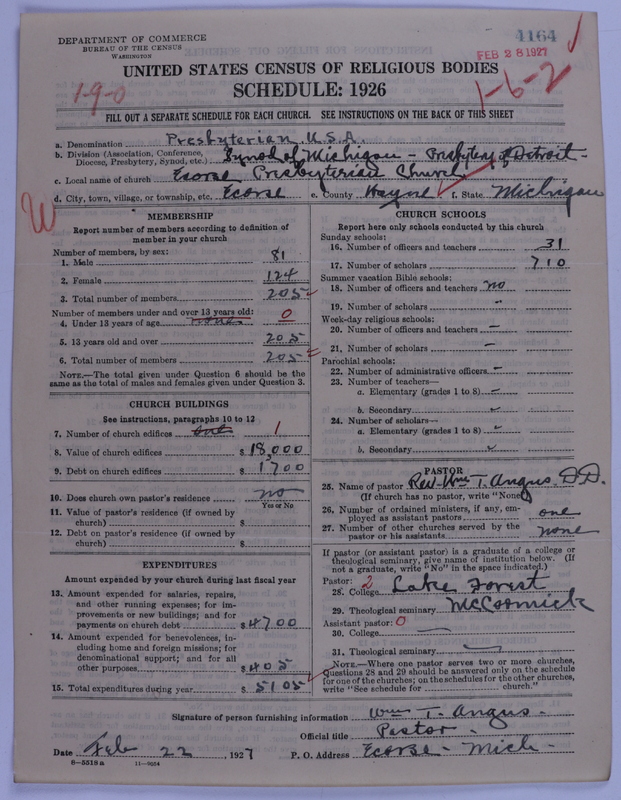 DEPARTMENT OF COMMERCE
BUREAU OF THE CENSUS
WASHINGTON
4164
FEB 28 1927
1-9-0
1-6-2
UNITED STATES CENSUS OF RELIGIOUS BODIES
SCHEDULE: 1926
FILL OUT A SEPARATE SCHEDULE FOR EACH CHURCH. SEE INSTRUCTIONS ON THE BACK OF THIS SHEET
a. Denomination Presbyterian U.S.A.
b. Division (Association, Conference, Diocese, Presbytery, Synod, etc.) Synod of Michigan - Presbytery of Detroit -
c. Local name of church Ecorse Presbyterian Church
d. City, town, village, or township, etc. Ecorse e. County Wayne f. State Michigan
W
MEMBERSHIP
Report number of members according to definition of
member in your church
Number of members, by sex:
1. Male 81
2. Female 124
3. Total number of members 205
Number of members under and over 13 years old:
4. Under 13 years of age none 0
5. 13 years old and over 205
6. Total number of members 205
NOTE.—The total given under Question 6 should be
same as the total of males and females given under Question 3.
CHURCH BUILDINGS
See instructions, paragraphs 10 to 12
7. Number of church edifices one 1
8. Value of church edifices $ 18,000
9. Debt on church edifices $ 1700
10. Does church own pastor's residence no
Yes or No
11. Value of pastor's residence (if owned by
church) $
12. Debt on pastor's residence (if owned by
church) $
EXPENDITURES
Amount expended by your church during last fiscal year
13. Amount expended for salaries, repairs,
and other running expenses; for im-
provements or new buildings; and for
payments on church debt $ 4700
14. Amount expended for benevolences, in-
cluding home and foreign missions; for
denominational support; and for all
other purposes $ 405
15. Total expenditures during year $ 5105
CHURCH SCHOOLS
Report here only schools conducted by this church
Sunday schools:
16. Number of officers and teachers 31
17. Number of scholars 710
Summer vacation Bible schools:
18. Number of officers and teachers no
19. Number of scholars
Week-day religious schools:
20. Number of officers and teachers
21. Number of scholars
Parochial schools:
22. Number of administrative officers
23. Number of teachers—
a. Elementary (grades 1 to 8)
b. Secondary
24. Number of scholars—
a. Elementary (grades 1 to 8)
b. Secondary
PASTOR
25. Name of pastor Rev. Wm T. Angus D.D.
(If church has no pastor, write "None")
26. Number of ordained ministers, if any, em-
ployed as assistant pastors one
27. Number of other churches served by the
pastor or his assistants none
If pastor (or assistant pastor) is a graduate of a college or
theological seminary, give name of institution below. (If
not a graduate, write "No" in the space indicated.)
Pastor: 2
28. College Lake Forest
29. Theological seminary McCormick
Assistant pastor: 0
30. College
31. Theological seminary
NOTE.—Where one pastor serves two or more churches,
Questions 28 and 29 should be answered only on the schedule
for one of the churches; on the schedules for the other churches,
write "See schedule for church."
Signature of person furnishing information Wm T. Angus -
Official title Pastor -
Date Feb 22, 1927 P. O. Address Ecorse - Mich -
8-5518 a 11-9024